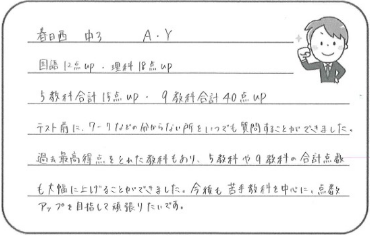 春日西 中3 A.Y
国語12点up ・ 理科18点up
5教科合計15点up ・ 9教科合計40点up
テスト前に、ワークなどの分からない所をいつでも質問することができました。
過去最高得点をとれた教科もあり、5教科や9教科の合計点数
も大幅に上げることができました。今後も苦手教科を中心に、点数
アップを目指して頑張りたいです。